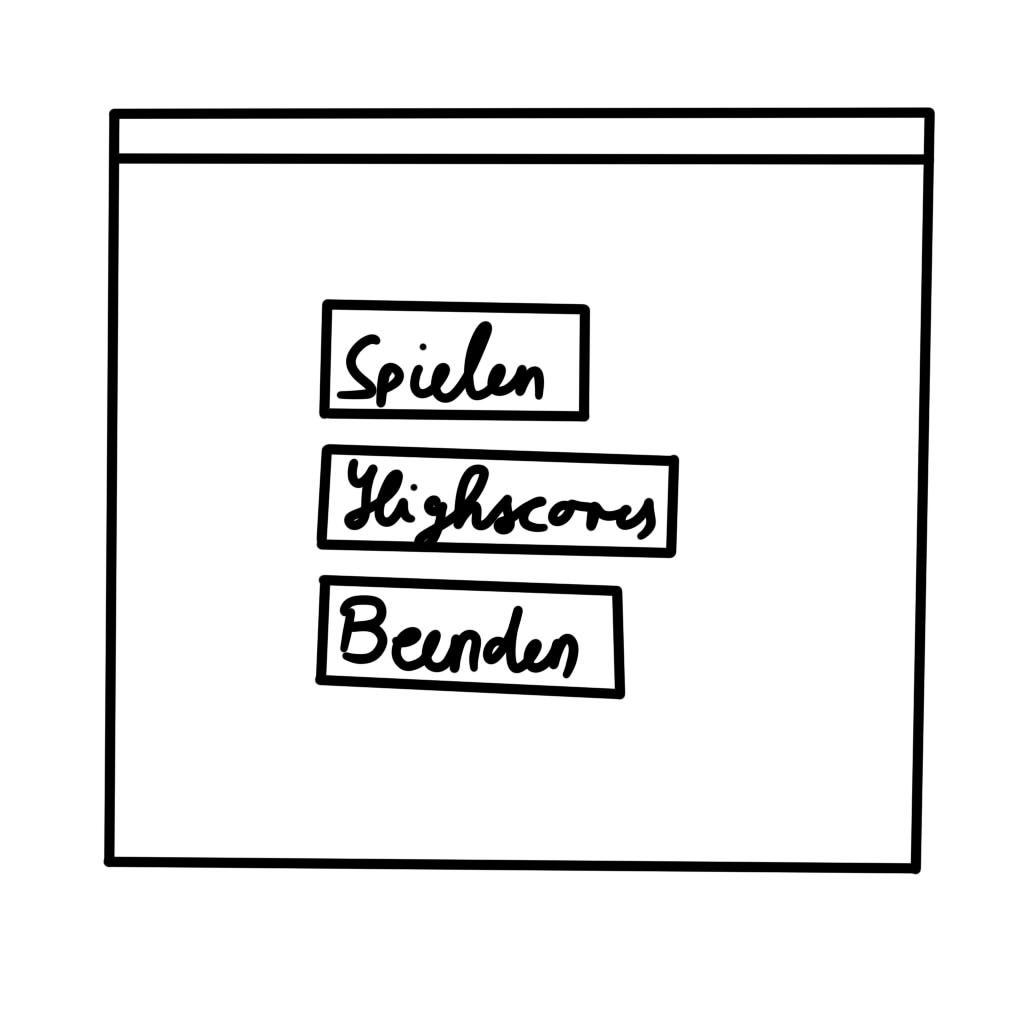 Spielen
Highscores
Beenden